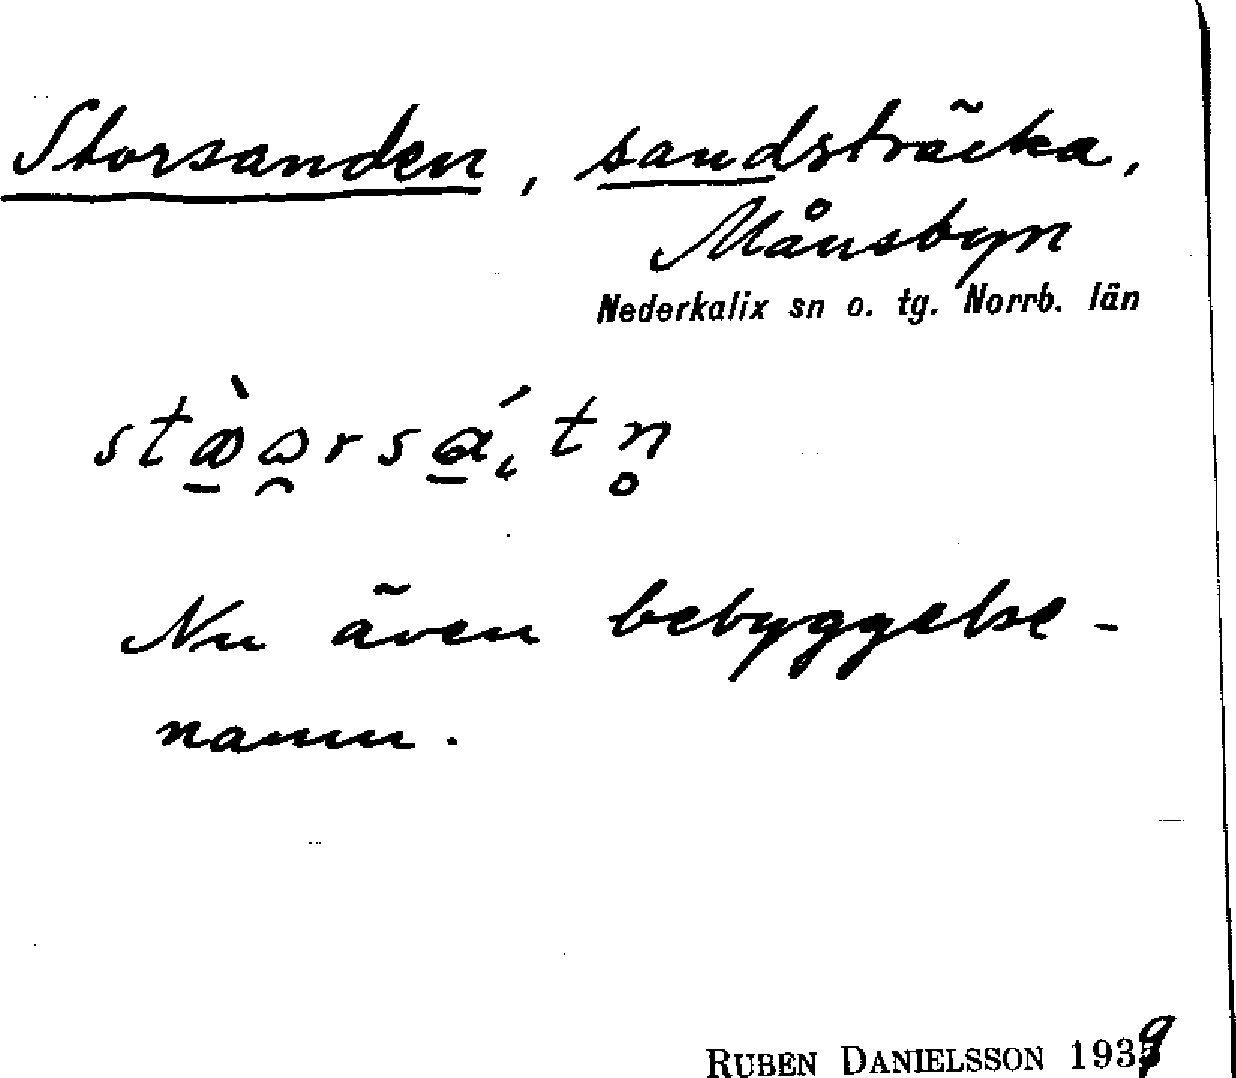 Storsanden, sandsträcka,
Månsbyn
Nederkalix sn o. tg. Norrb. län
Nu även bebyggelse-
namn.
RUBEN DANIELSSON 1939